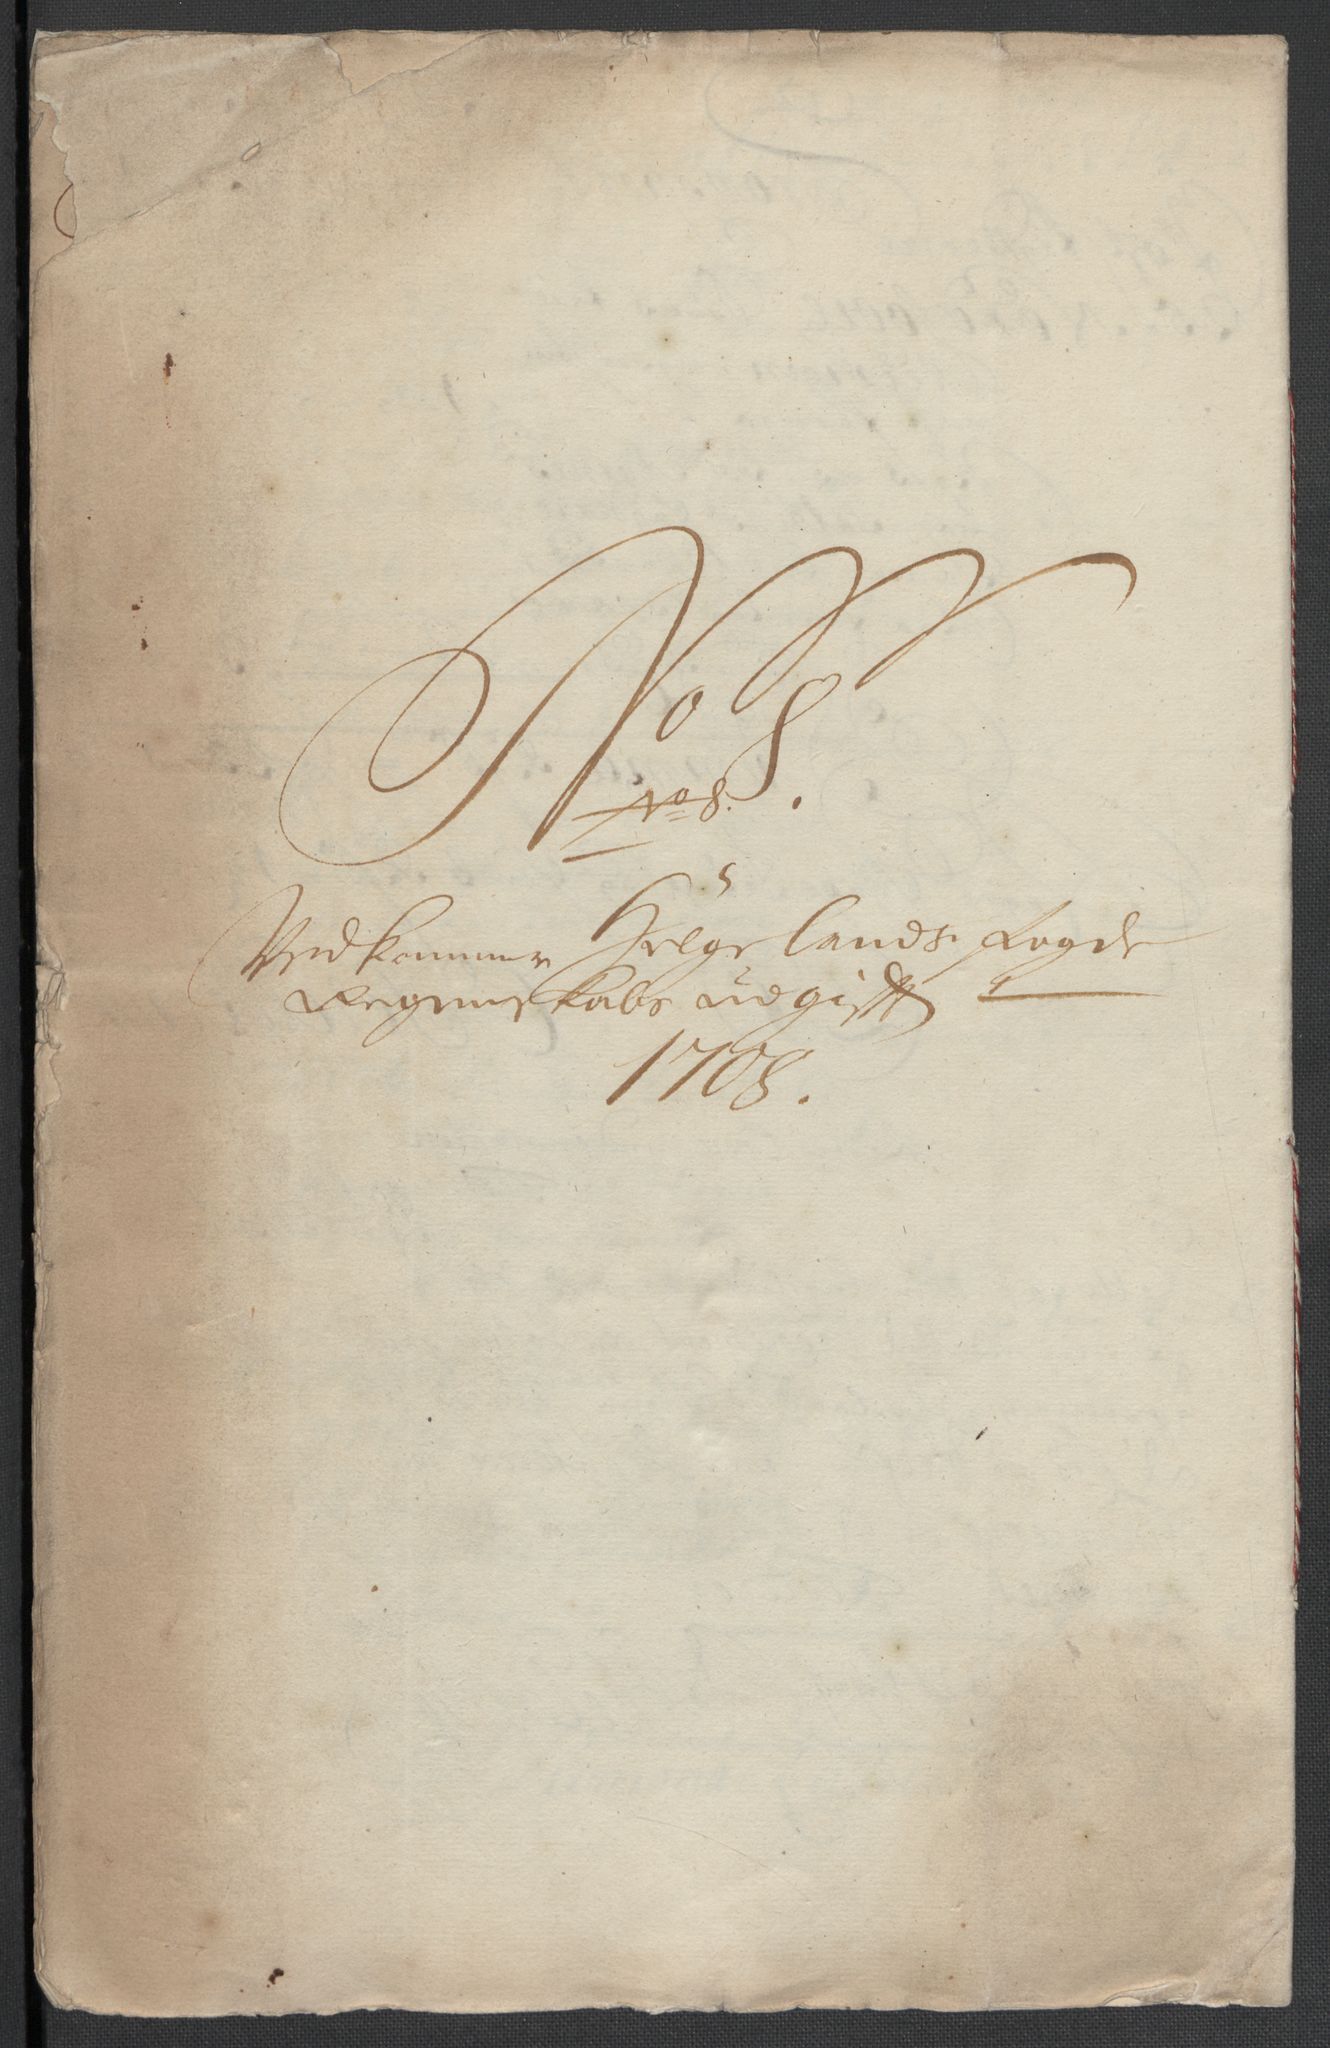 No 8.
No 8.
Vedkommer Helgelands Fogde
Regenskabs udgifft
1708.